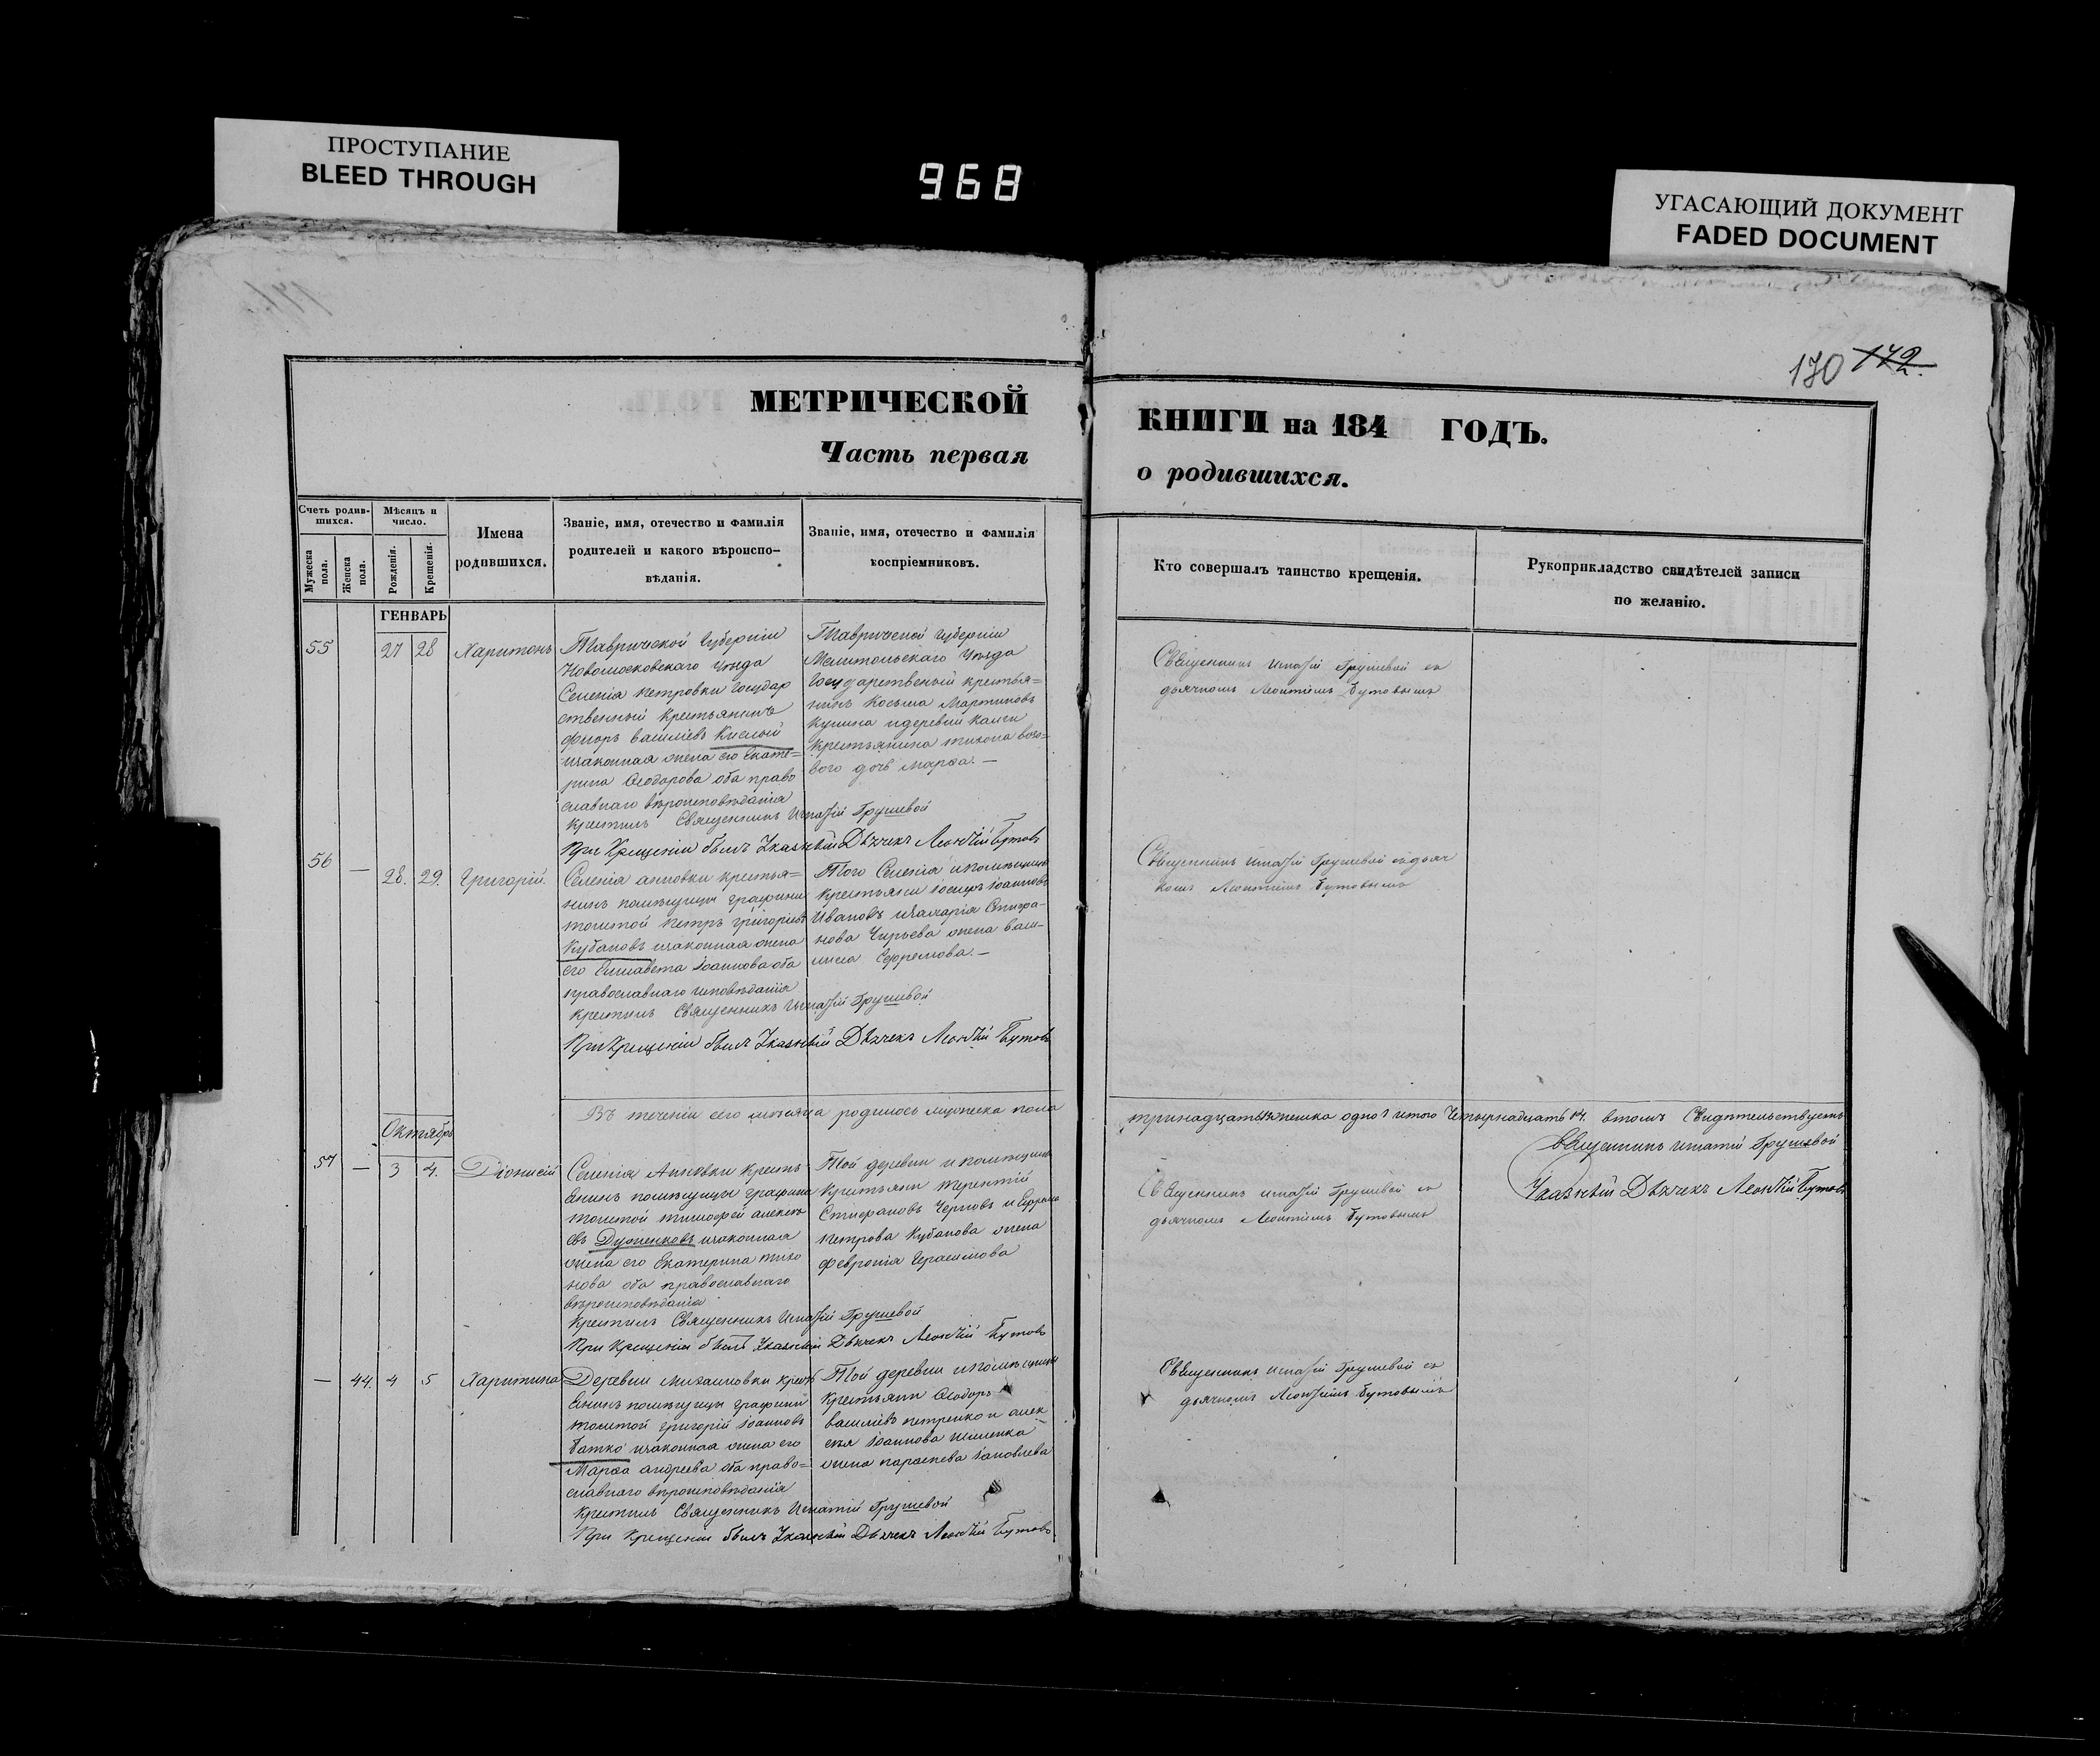 ПРОСТУПАНИЕ
BLEED THROUGH
968
УГАСАЮЩИЙ ДОКУМЕНТ
FADED DOCUMENT
170 172.
МЕТРИЧЕСКОЙ
Часть первая
КНИГИ на 184 ГОДЪ.
о родившихся.
Счетъ родив-
шихся.
Мужеска
пола.
Женска
пола.
Мѣсяцъ и
число.
Рожденія.
Крещенія.
Имена
родившихся.
Званіе, имя, отечество и фамилія
родителей и какого вѣроиспо-
вѣданія.
Званіе, имя, отечество и фамилія
воспріемниковъ.
Кто совершалъ таинство крещенія.
Рукоприкладство свидѣтелей записи
по желанію.
ГЕНВАРЬ
55
27 28
Харитонъ
Таврической Губерніи
Селенія Петровки Государ
ственный Крестьянинъ
Василіевъ Кислый
изаконная жена его Екате=
рина Ѳеодорова оба право
славнаго вѣроисповѣданія
Крестилъ Священникъ Игнатій Грушевой
При Крещеніи былъ Указный Дьячекъ Леонтій Бутовъ
Таврической Губерніи
Мелитопольскаго Уѣзда
Государственный крестья=
нинъ Косьма Мартиновъ
крестьянина Тихона
дочь Марѳа. —
Священникъ Игнатій Грушевой съ
дьячкомъ Леонтіемъ Бутовымъ
56 — 28. 29. Григорій.
Селенія Анновки крестья=
нинъ помѣщицы графини
Толстой Петръ Григоріевъ
Кубановъ изаконная жена
его Елисавета Іоаннова оба
православнаго исповѣданія
Крестилъ Священникъ Игнатій Грушевой
При Крещеніи былъ Указный Дьячекъ Леонтій Бутовъ
Того Селенія ипомѣщицы
крестьяни Іосифъ Іоанновъ
Ивановъ
жена
Ефремова. —
Священникъ Игнатій Грушевой съ дьяч
комъ Леонтіемъ Бутовымъ
Въ теченіи сего мѣсяца родилось мужеска пола
тринадцать женска одно 1 итого Четырнадцать 14. втомъ Свидѣтельствуемъ
Священникъ Игнатій Грушевой
Указный Дьячекъ Леонтій Бутовъ
Октябрь
57 — 3 4. Діонисій
Селенія Анновки Кресть
янинъ помѣщицы графини
Толстой Тимофей Алексѣ
евъ Дуженковъ изаконная
жена его Екатерина Тихо
нова оба православнаго
вѣроисповѣданія
Крестилъ Священникъ Игнатій Грушевой
При Крещеніи былъ Указный Дьячекъ Леонтій Бутовъ
Той деревни и помѣщицы
Крестьяни Терентій
Стефановъ Черновъ и
Петрова Кубанова жена
Февронія Герасимова
Священникъ Игнатій Грушевой съ
дьячкомъ Леонтіемъ Бутовымъ
— 44. 4 5 Харитина
Деревни Михайловки кресть
янинъ помѣщицы графини
Толстой Григорій Іоанновъ
Батко изаконная жена его
Марѳа Андреева оба право=
славнаго вѣроисповѣданія
Крестилъ Священникъ Игнатій Грушевой
При Крещеніи былъ Указный Дьячекъ Леонтій Бутовъ.
Той деревни ипомѣщицы
Крестьяни Ѳеодоръ
Василіевъ Петренко и Алек
сѣя Іоаннова
жена Параскева Іаковлева
Священникъ Игнатій Грушевой съ
дьячкомъ Леонтіемъ Бутовымъ